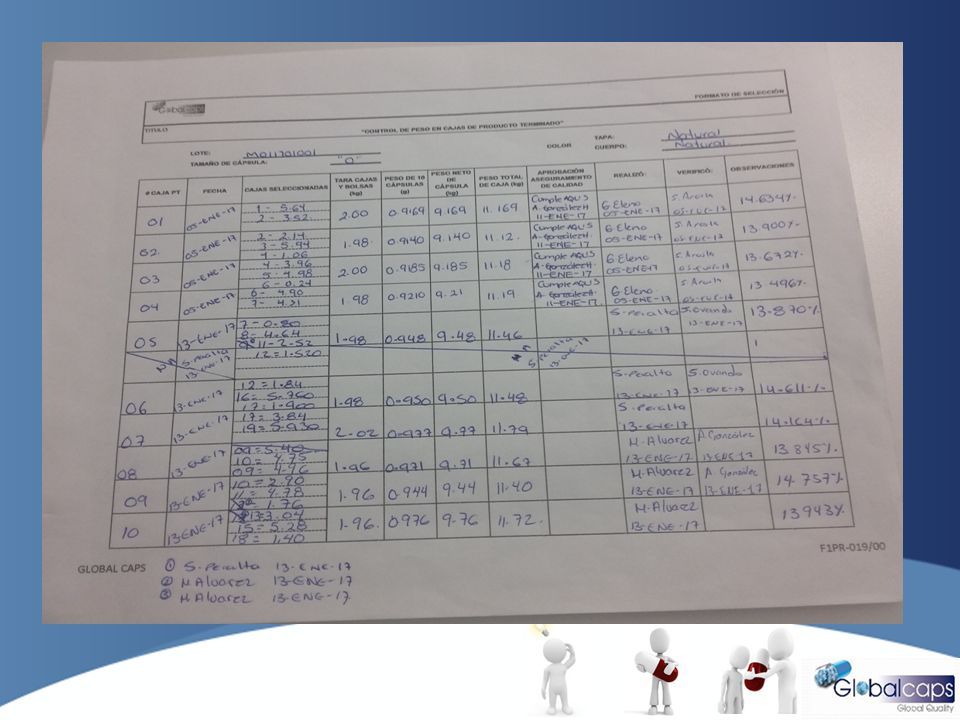 Globalcaps
FORMATO DE SELECCIÓN
TITULO "CONTROL DE PESO EN CAJAS DE PRODUCTO TERMINADO"
LOTE: M011701001 COLOR TAPA: Natural
TAMAÑO DE CÁPSULA: "0" CUERPO: Natural
# CAJA PT FECHA CAJAS SELECCIONADAS TARA CAJAS Y BOLSAS (kg) PESO DE 10 CÁPSULAS (g) PESO NETO DE CÁPSULA (kg) PESO TOTAL DE CAJA (kg) APROBACIÓN ASEGURAMIENTO DE CALIDAD REALIZÓ: VERIFICÓ: OBSERVACIONES
01 05-ENE-17 1 - 5.64 2.00 0.9169 9.169 11.169 Cumple AQL'S G Eleno 14.634%
2 - 3.52 11-ENE-17 05-ENE-17 05-ENE-17
02 05-ENE-17 2 - 2.14 1.98 0.9140 9.140 11.12 Cumple AQL'S G Eleno 13.900%
3 - 5.94 11-ENE-17 05-ENE-17 05-ENE-17
4 - 1.06
03 05-ENE-17 4 - 3.96 2.00 0.9185 9.185 11.18 Cumple AQL'S G Eleno 13.672%
5 - 4.98 11-ENE-17 05-ENE-17 05-ENE-17
6 - 0.24
04 05-ENE-17 6 - 4.90 1.98 0.9210 9.21 11.19 Cumple AQL'S G Eleno 13 496%
7 - 4.21 11-ENE-17 05-ENE-17 05-ENE-17
05 13-ENE-17 7 - 0.80 1.98 0.948 9.48 11.46 S-Peralta S.Ovando 13.870%
8 - 4.64 13-ENE-17 13-ENE-17
11 - 2.52
12 = 1.520
NA S-Peralta 13-ENE-17 NA S-Peralta 13-ENE-17
06 13-ENE-17 12 = 1.84 1.98 0.950 9.50 11.48 S-Peralta S.Ovando 14.611%
16 = 5.760 13-ENE-17 13-ENE-17
17 = 1.900
07 13-ENE-17 17 = 3.84 2.02 0.977 9.77 11.79 S-Peralta 14.164%
19 = 5.930 13-ENE-17
08 13-ENE-17 09 = 5.40 1.96 0.971 9.71 11.67 M-Alvarez A González 13.845%
10 = 4.75 13-ENE-17 13 ENE 17
09 = 4.96
09 13-ENE-17 10 = 2.90 1.96 0.944 9.44 11.40 M-Alvarez A. González 14.757%
11 = 4.78 13-ENE-17 13-ENE-17
1.76
10 13-ENE-17 13 = 3.04 1.96 0.976 9.76 11.72 M-Alvarez 13943%
15 = 5.28 13-ENE-17
18 = 1.40
F1PR-019/00
GLOBAL CAPS ① S-Peralta 13-ENE-17
② M Alvarez 13-ENE-17
③ M Alvarez 13-ENE-17
Globalcaps
Global Quality